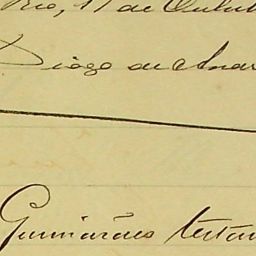 Rio, 17 de Outub
Diogo de Andr
Guimarães testam